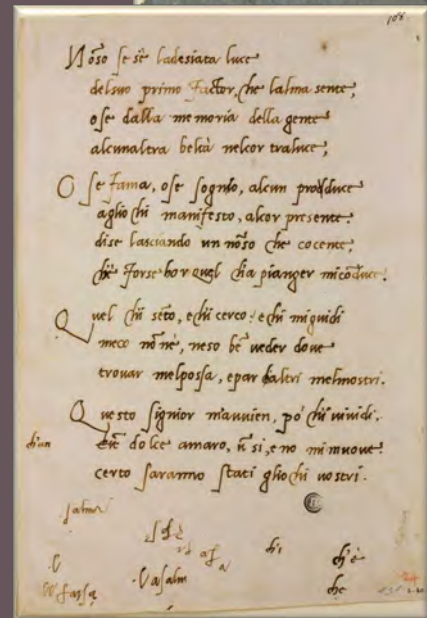 108
Nõso se sẽ la desiata luce
del suo primo Factor, che lalma sente,
o se dalla memoria della gente
alcunaltra beltà nelcor traluce,
O se Fama, o se sognio, alcun produce
aglio chi manifesto, alcor presente.
di se lasciando un nõso che cocente,
chè Forse hor quel cha pianger mi cõduce.
Quel chi sẽto, e chi cerco: e chi mi guidi
meco nõ nè, neso bẽ veder dove
trovar melpossa, e par chaltri melmostri.
Questo signior mavvien, po chi vi vidi.
chun
dolce amaro, ũ si, e no mi muove:
certo saranno stati gliochi vostri.
salma
chi
ch'è
che